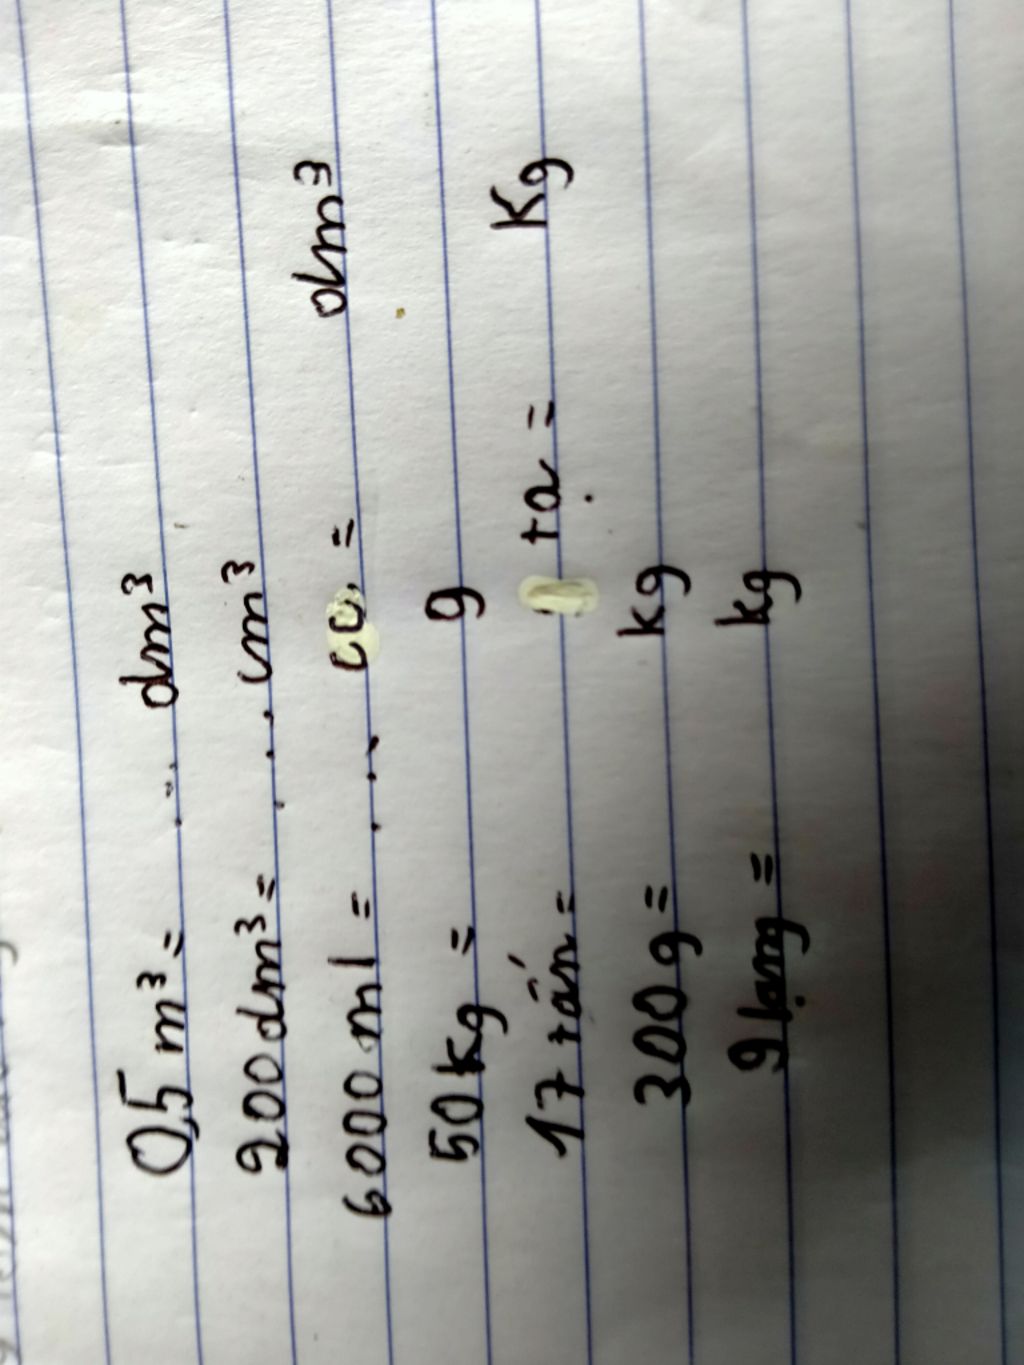 0,5 m³ = ... dm³
200 dm³ = ... cm³
6000 ml = ... cc = dm³
50 kg = g
17 tấn = tạ = Kg
300 g = kg
9 lạng = kg